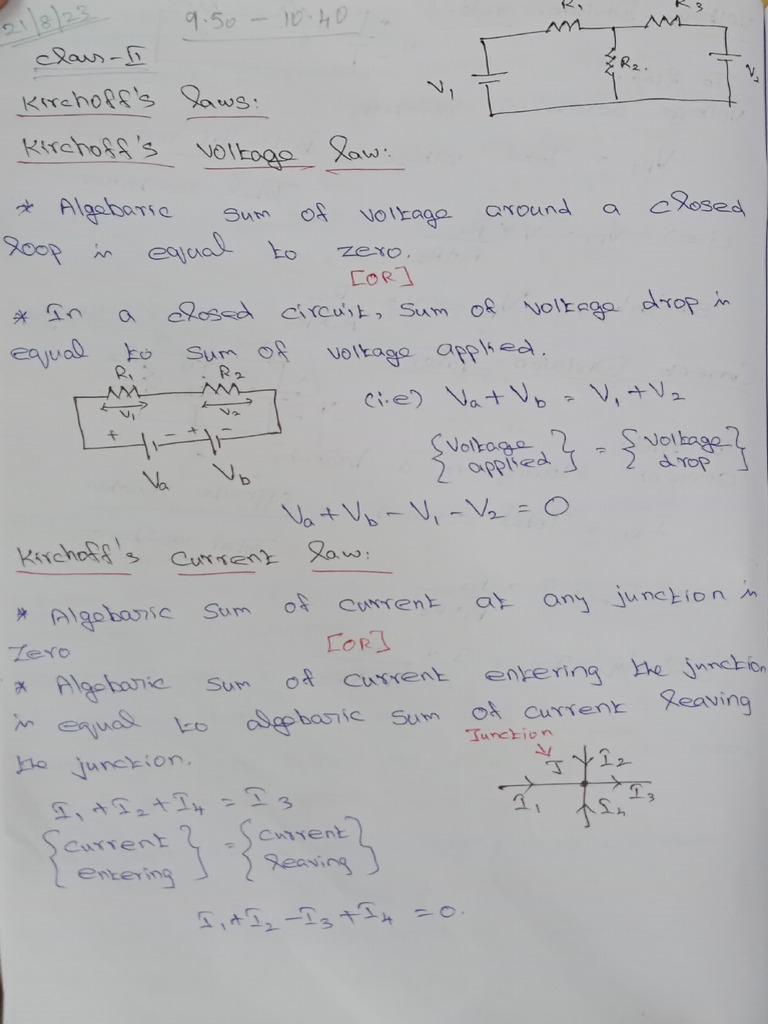 21/8/23 9.50 - 10.40
R1 R3
Class-II
R2.
V1
Kirchoff's laws:
Kirchoff's voltage law:
* Algebaric sum of voltage around a closed
loop is equal to zero.
[OR]
* In a closed circuit, sum of voltage drop is
equal to sum of voltage applied.
R1 R2
V1 V2
+ - + -
Va Vb
(i.e) Va + Vb = V1 + V2
{Voltage applied} = {Voltage drop}
Va + Vb - V1 - V2 = 0
Kirchoff's current law:
* Algebaric sum of current at any junction is
Zero
[OR]
* Algebaric sum of current entering the junction
is equal to algebaric sum of current leaving
the junction.
Junction
J I2
I1 I3
I4
I1 + I2 + I4 = I3
{current entering} = {current leaving}
I1 + I2 - I3 + I4 = 0.